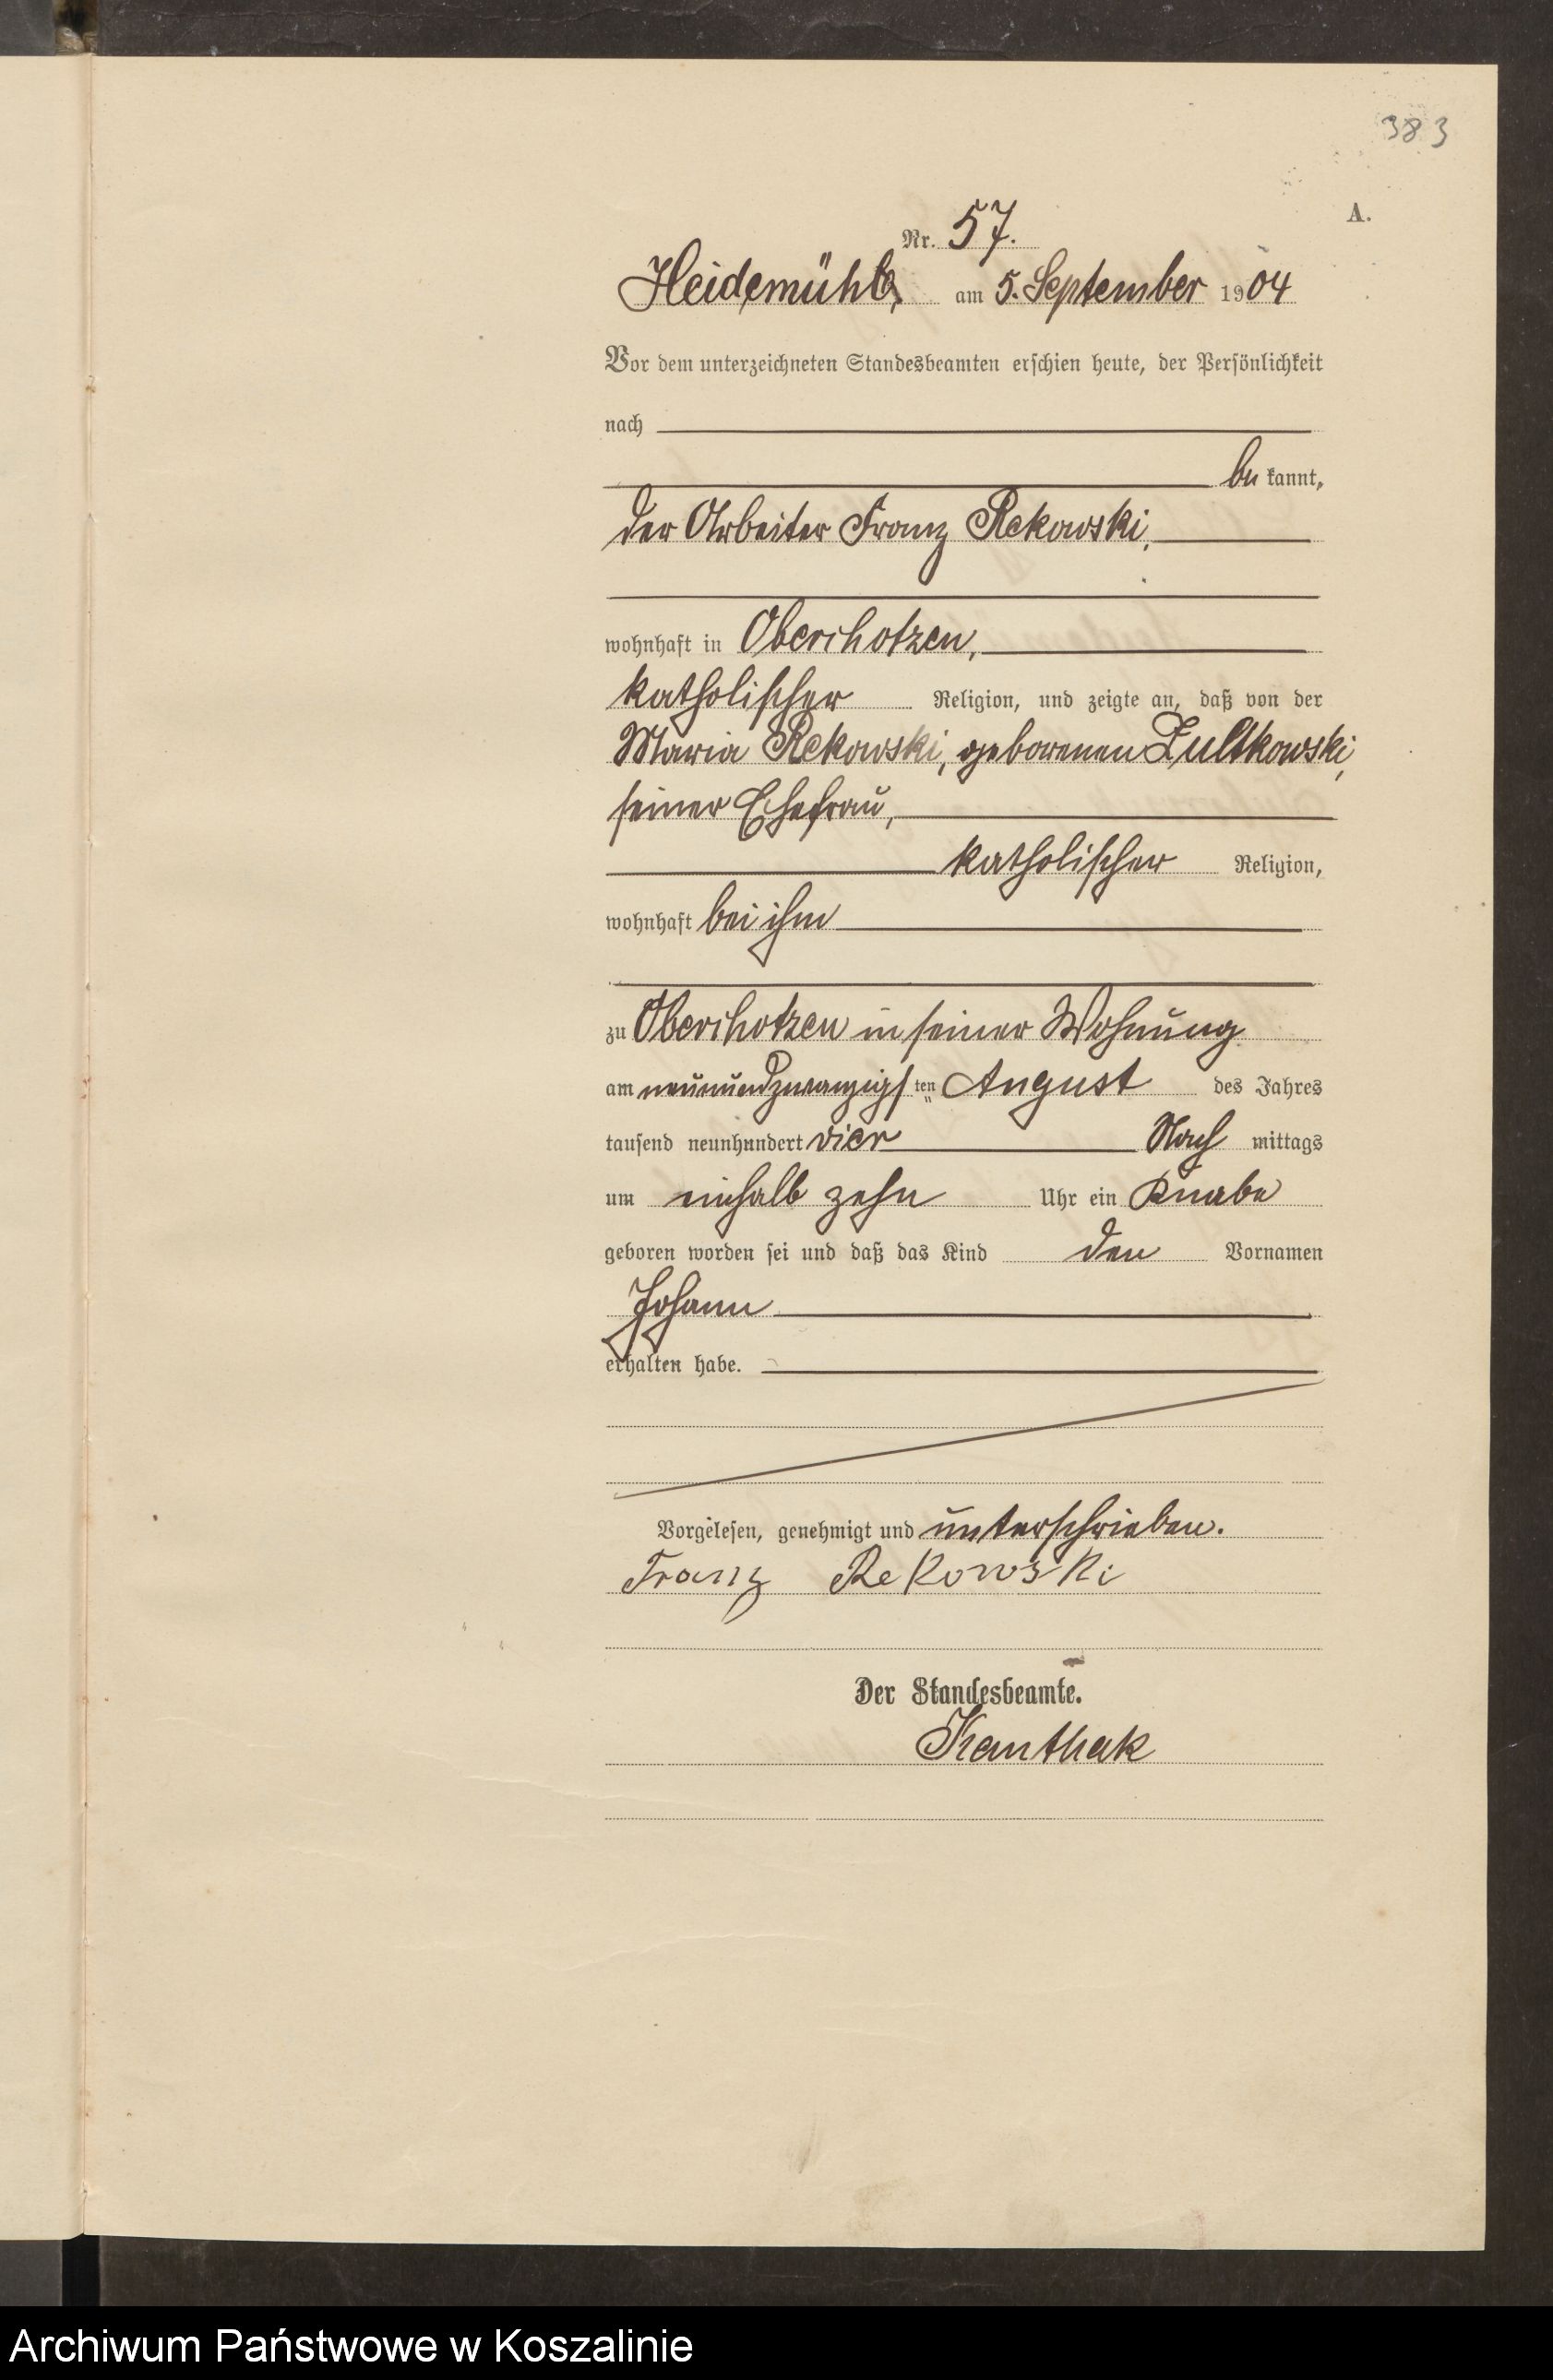 383
A.
Nr. 57.
Heidemühl, am 5. September 1904
Vor dem unterzeichneten Standesbeamten erschien heute, der Persönlichkeit
nach
be kannt,
der Arbeiter Franz Rekowski,
wohnhaft in Oberchotzen,
katholischer Religion, und zeigte an, daß von der
Maria Rekowski, geborenen Zultkowski,
seiner Ehefrau,
katholischer Religion,
wohnhaft bei ihm
zu Oberchotzen in seiner Wohnung
am neunundzwanzigsten August des Jahres
tausend neunhundert vier Nach mittags
um einhalb zehn Uhr ein Knabe
geboren worden sei und daß das Kind den Vornamen
Johann
erhalten habe.
Vorgelesen, genehmigt und unterschrieben.
Franz Rekowski
Der Standesbeamte.
Kanthak
Archiwum Państwowe w Koszalinie